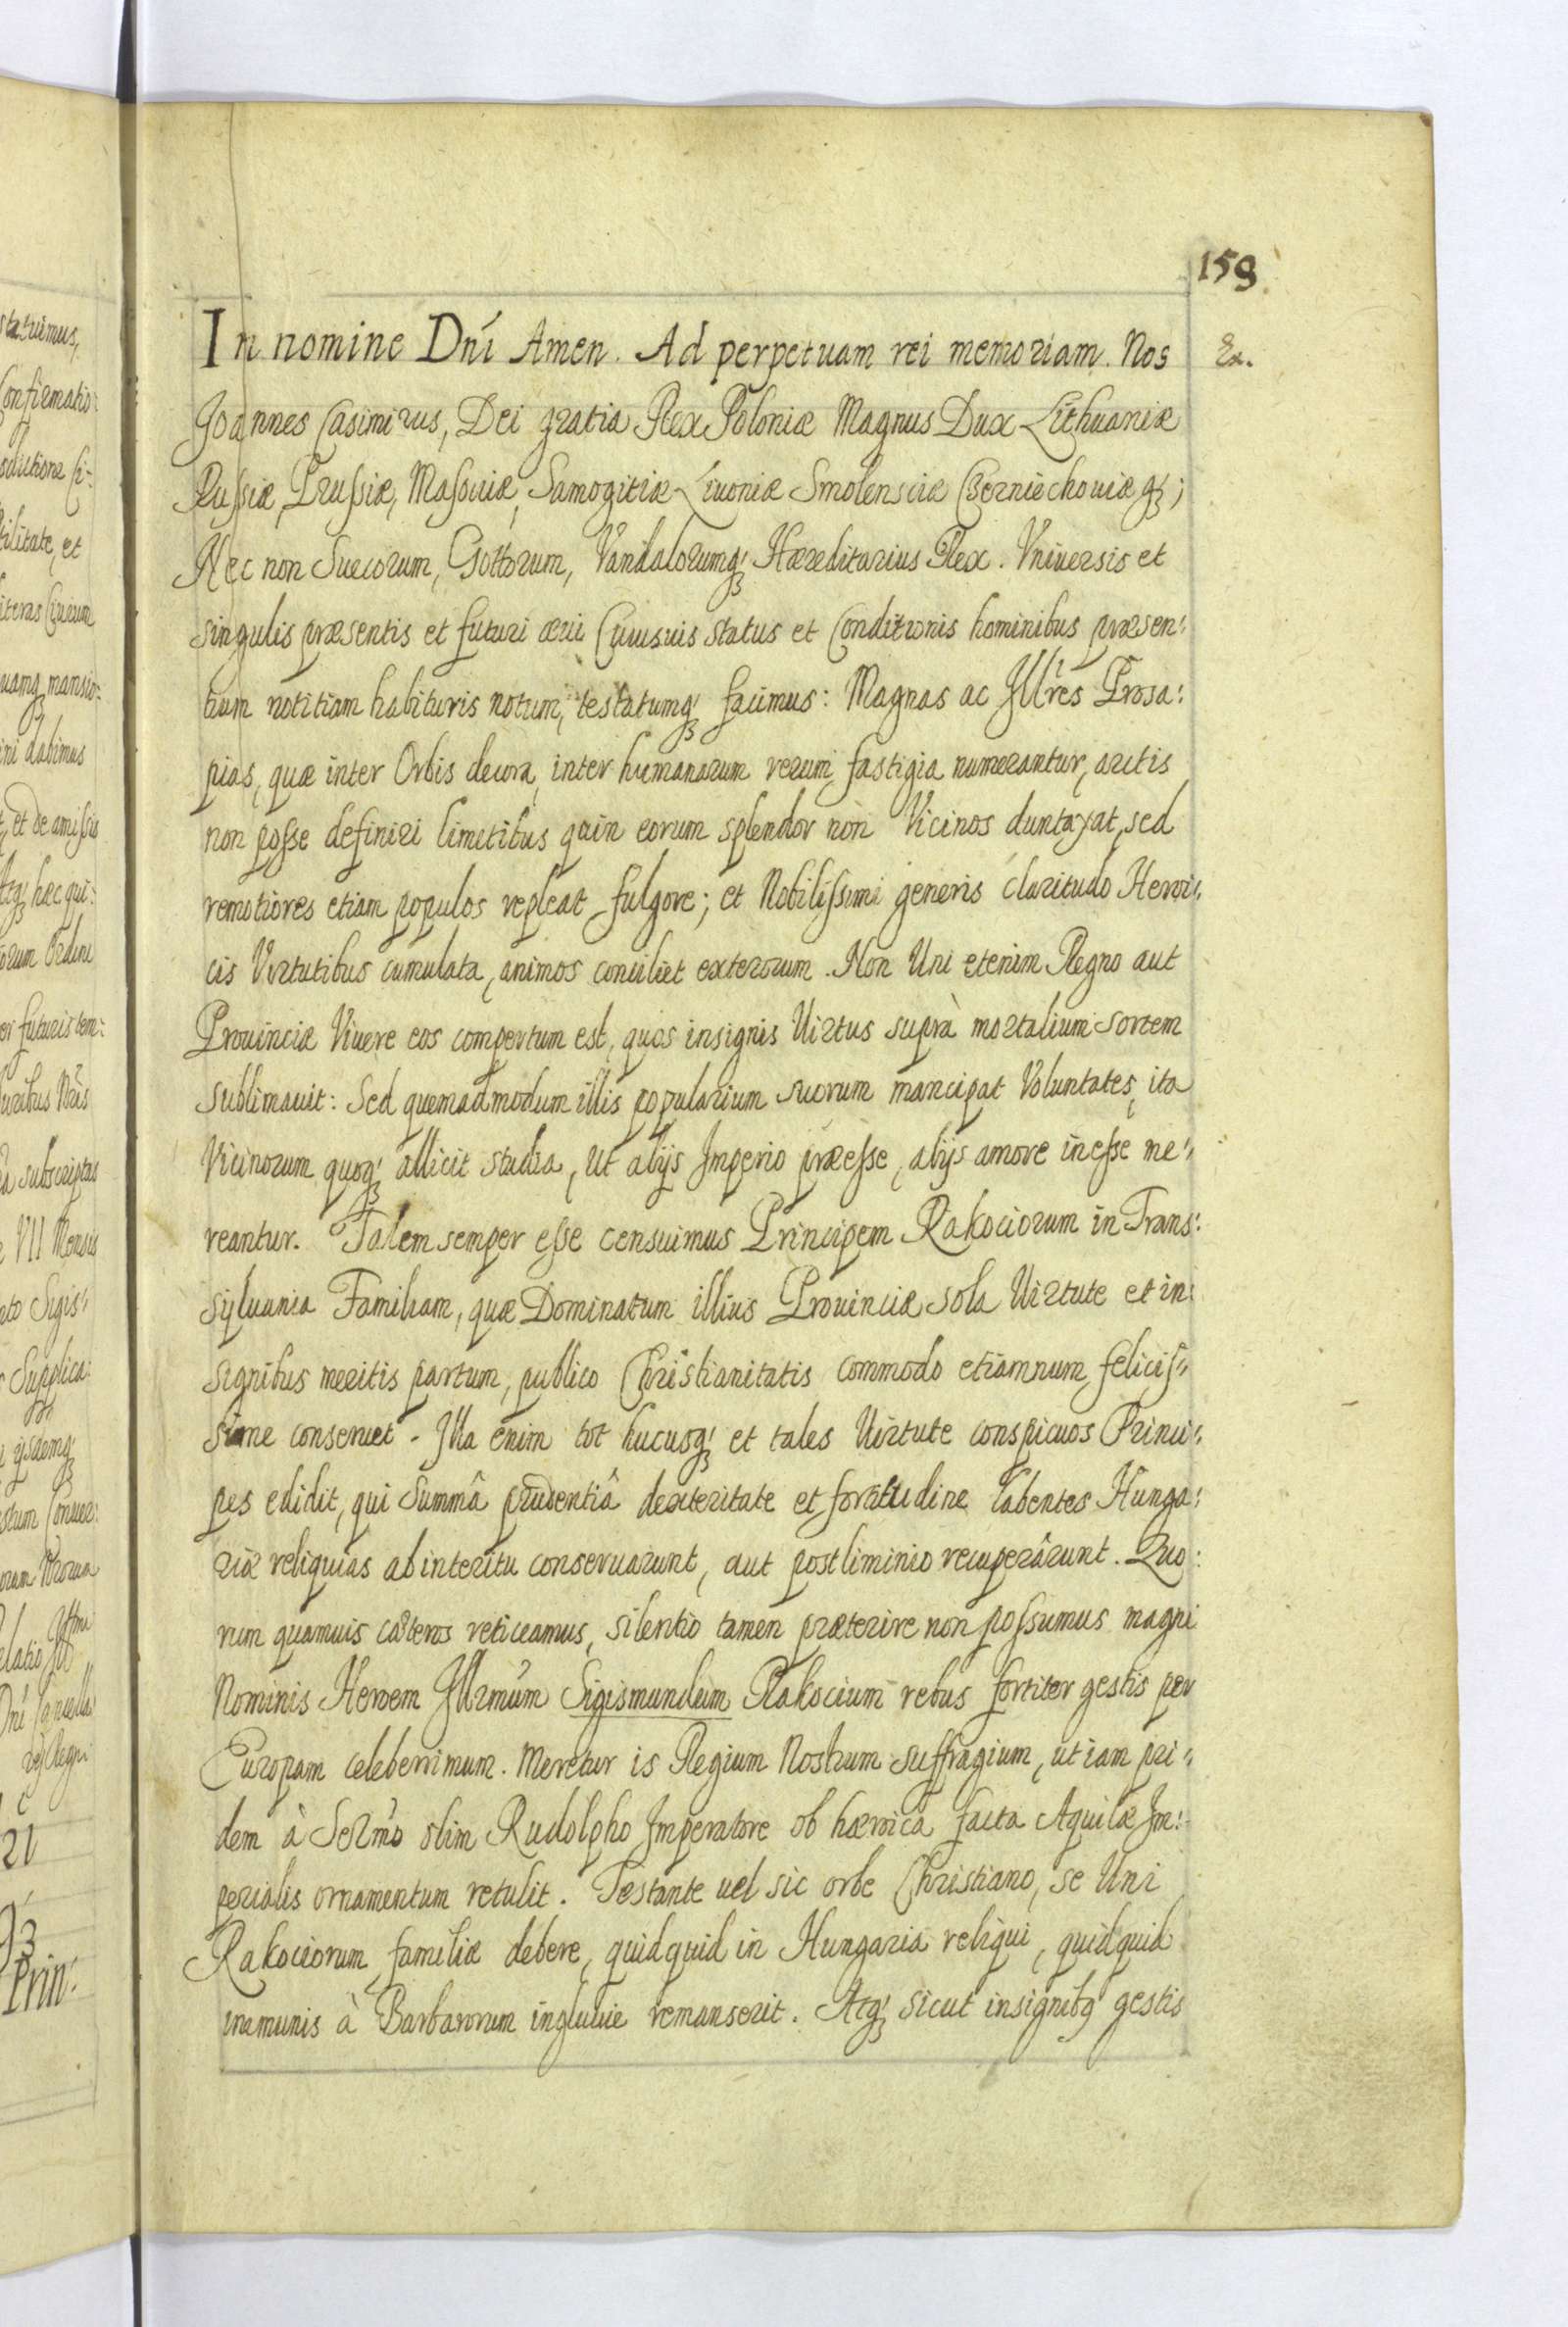 159
In nomine Dńi Amen. Ad perpetuam rei memoriam. Nos
Ex.
Joannes Casimirus, Dei gratia Rex Poloniæ Magnus Dux Lithuaniæ
Russiæ, Prussiæ, Masoviæ, Samogitiæ Livoniæ Smolensciæ Czerniechoviæq́ꝫ;
Nec non Suecorum, Gottorum, Vandalorumq́ꝫ Hæreditarius Rex. Vniversis et
singulis præsentis et futuri ævi Cuiusuis status et Conditionis hominibus præsen:
tium notitiam habituris notum, testatumq́ꝫ facimus: Magnas ac Jllres Prosa:
pias, quæ inter Orbis decora, inter humanarum rerum fastigia numerantur, arctis
non posse definiri limitibus quin eorum splendor non Vicinos duntaxat, sed
remotiores etiam populos repleat fulgore; et Nobilissimi generis claritudo Heroi:
cis Virtutibus cumulata, animos conciliet exterorum. Non Uni etenim Regno aut
Provinciæ Vivere eos compertum est, quos insignis Virtus suprà mortalium sortem
sublimavit: Sed quemadmodum illis popularium suorum mancipat Voluntates, ita
Vicinorum quoq́ꝫ allicit studia, Ut alijs Imperio præesse, alijs amore inesse me:
reantur. Talem semper esse censuimus Principem Rakociorum in Trans:
sylvania Familiam, quæ Dominatum illius Provinciæ sola Virtute et in:
signibus meritis partum, publico Christianitatis commodo etiamnum felicis:
sime conservet. Illa enim tot hucusq́ꝫ et tales Virtute conspicuos Princi:
pes edidit, qui Summâ prudentiâ dexteritate et fortitudine labentes Hunga:
riæ reliquias ab interitu conservarunt, aut postliminio recuperârunt. Quo:
rum quamuis cæteros reticeamus, silentio tamen præterire non possumus magni
Nominis Heroem Jllrmum Sigismundum Rakocium rebus fortiter gestis per
Europam celeberrimum. Meretur is Regium Nostrum suffragium, ut iam pri:
dem à Sermo olim Rudolpho Imperatore ob hæroica facta Aquilæ Im:
perialis ornamentum retulit. Testante vel sic orbe Christiano, se Uni
Rakociorum familiæ debere, quidquid in Hungaria reliqui, quidquid
immunis à Barbarorum ingluvie remanserit. Atq́ꝫ sicut insignibꝫ gestis